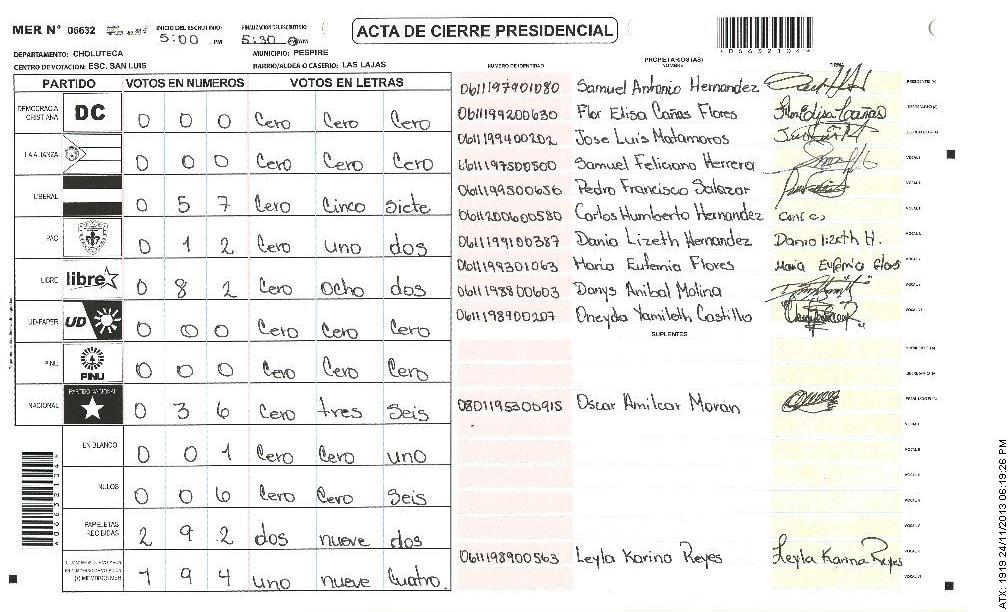 MER N° 06632 INICIO DEL ESCRUTINIO: 5:00 PM FINALIZACION DEL ESCRUTINIO: 5:30 PM
ACTA DE CIERRE PRESIDENCIAL
DEPARTAMENTO: CHOLUTECA MUNICIPIO: PESPIRE
CENTRO DE VOTACION: ESC. SAN LUIS BARRIO/ALDEA O CASERIO: LAS LAJAS
PARTIDO VOTOS EN NUMEROS VOTOS EN LETRAS
DEMOCRACIA CRISTIANA DC 0 0 0 Cero Cero Cero
LA ALIANZA 0 0 0 Cero Cero Cero
LIBERAL 0 5 7 Cero Cinco Siete
PAC 0 1 2 Cero uno dos
LIBRE libre 0 8 2 Cero Ocho dos
UD-FAPER UD 0 0 0 Cero Cero Cero
PINU PINU 0 0 0 Cero Cero Cero
NACIONAL PARTIDO NACIONAL 0 3 6 Cero tres Seis
EN BLANCO 0 0 1 Cero Cero uno
NULOS 0 0 6 Cero Cero Seis
PAPELETAS RECIBIDAS 2 9 2 dos nueve dos
(+) MIEMBROS MER 1 9 4 uno nueve Cuatro
PROPIETARIOS(AS)
NUMERO DE IDENTIDAD NOMBRE FIRMA
0611197901080 Samuel Antonio Hernandez
0611199200630 Flor Elisa Cañas Flores
0611199400202 Jose Luis Matamoros
0611197500500 Samuel Feliciano Herrera
0611199500656 Pedro Francisco Salazar
0611200600580 Carlos Humberto Hernandez
0611199100387 Dania Lizeth Hernandez Dania lizeth H.
0611199301063 Maria Eufemia Flores Maria Eufemia flores
0611198800603 Danys Anibal Molina
0611198900207 Oneyda Yamileth Castillo
SUPLENTES
0801195300915 Oscar Amilcar Moran
0611198900563 Leyla Karina Reyes Leyla Karina Reyes
ATX: 1919 24/11/2013 06:19:26 PM